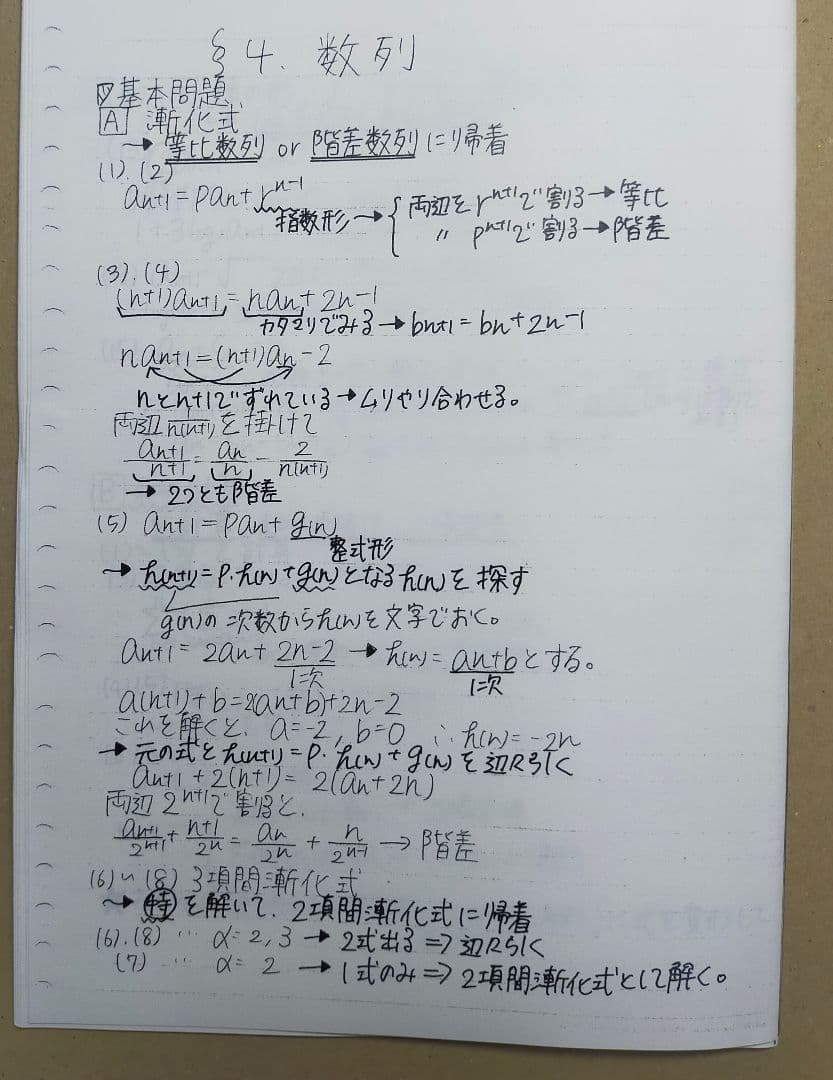 §4. 数列
基本問題
A 漸化式
→ 等比数列 or 階差数列に帰着
(1).(2)
an+1=pan+r^n-1
指数形→{ 両辺をr^n+1で割る→等比
〃 p^n+1で割る→階差
(3).(4)
(n+1)an+1=nan+2n-1
カタマリでみる→bn+1=bn+2n-1
nan+1=(n+1)an-2
nとn+1でずれている→ムリやり合わせる。
両辺 1/n(n+1) を掛けて
an+1/n+1=an/n-2/n(n+1)
→ 2つとも階差
(5) an+1=pan+g(n)
整式形
→ h(n+1)=p・h(n)+g(n)となるh(n)を探す
g(n)の次数からh(n)を文字でおく。
an+1=2an+2n-2→h(n)=an+bとする。
1次 1次
a(n+1)+b=2(an+b)+2n-2
これを解くと、a=-2, b=0 ∴h(n)=-2n
→ 元の式とh(n+1)=p・h(n)+g(n)を辺々引く
an+1+2(n+1)=2(an+2n)
両辺2^n+1で割ると、
an+1/2^n+1+n+1/2^n=an/2^n+n/2^n-1→階差
(6)~(8) 3項間漸化式
→ 特を解いて、2項間漸化式に帰着
(6).(8) … α=2,3→2式出る⇒辺々引く
(7) … α=2 →1式のみ⇒2項間漸化式として解く。